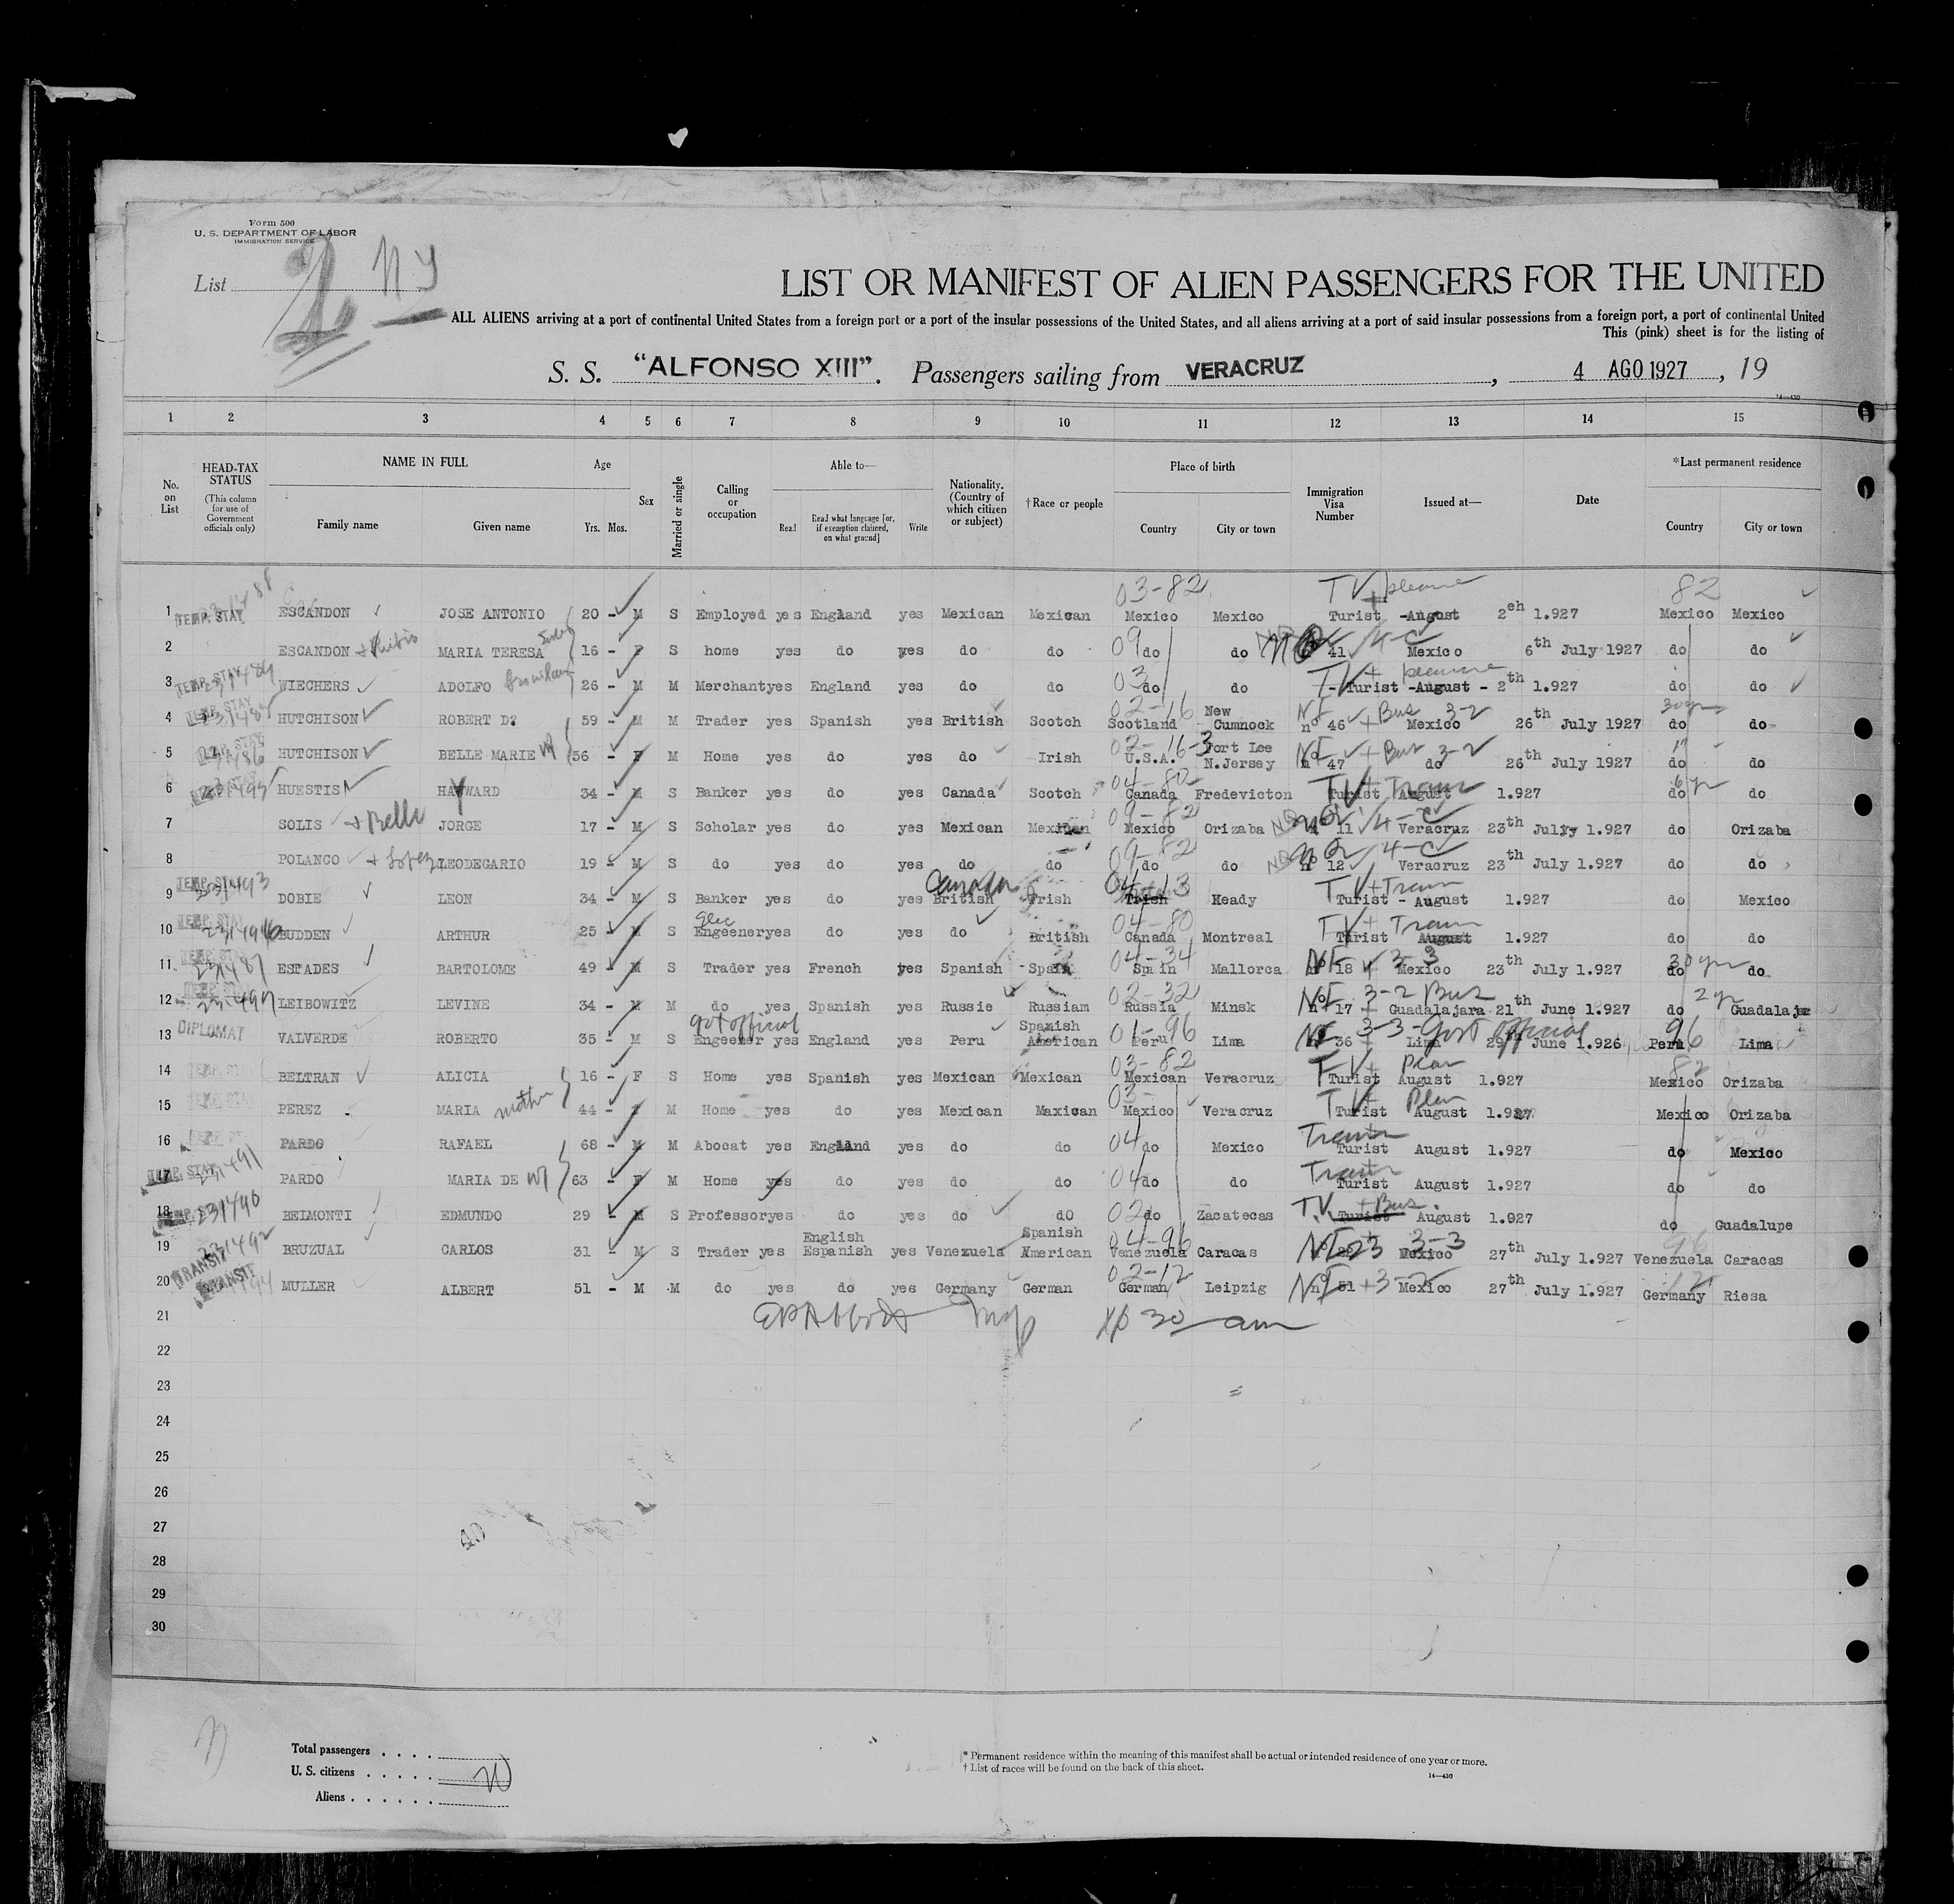 Form 500
U. S. DEPARTMENT OF LABOR
IMMIGRATION SERVICE
List 2 NY
LIST OR MANIFEST OF ALIEN PASSENGERS FOR THE UNITED
ALL ALIENS arriving at a port of continental United States from a foreign port or a port of the insular possessions of the United States, and all aliens arriving at a port of said insular possessions from a foreign port, a port of continental United
This (pink) sheet is for the listing of
S. S. "ALFONSO XIII". Passengers sailing from VERACRUZ, 4 AGO 1927, 19
14—430
1 2 3 4 5 6 7 8 9 10 11 12 13 14 15
No. on List
HEAD-TAX STATUS (This column for use of Government officials only)
NAME IN FULL
Family name Given name
Age
Yrs. Mos.
Sex
Married or single
Calling or occupation
Able to—
Read Read what language [or, if exemption claimed, on what ground] Write
Nationality. (Country of which citizen or subject)
†Race or people
Place of birth
Country City or town
Immigration Visa Number
Issued at—
Date
*Last permanent residence
Country City or town
03-82 TV + pleasure 82
1 TEMP. STAY ESCANDON JOSE ANTONIO 20 - M S Employed yes England yes Mexican Mexican Mexico Mexico Turist -August 2eh 1.927 Mexico Mexico
2 ESCANDON MARIA TERESA 16 - F S home yes do yes do do 09 do do 41 4-C Mexico 6th July 1927 do do
3 TEMP. STAY WIECHERS ADOLFO 26 - M M Merchant yes England yes do do 03 do do TV + pleasure - Turist -August - 2th 1.927 do do
4 TEMP. STAY HUTCHISON ROBERT D? 59 - M M Trader yes Spanish yes British Scotch 02-16 Scotland New Cumnock nº 46 + Bus 3-2 Mexico 26th July 1927 30 yrs do do
5 HUTCHISON BELLE MARIE wf 56 - F M Home yes do yes do Irish 02-16-3 U.S.A. Fort Lee N.Jersey nº 47 + Bus 3-2 do 26th July 1927 do do
6 HUESTIS HAYWARD 34 - M S Banker yes do yes Canada Scotch 04-80 Canada Fredevicton TV + Tran Turist August 1.927 6 yr do do
7 SOLIS + Belle JORGE 17 - M S Scholar yes do yes Mexican Mexican 09-82 Mexico Orizaba 11 4-C Veracruz 23th July 1.927 do Orizaba
8 POLANCO + Lopez LEODEGARIO 19 - M S do yes do yes do do 09-82 do do nº 12 4-C Veracruz 23th July 1.927 do do
9 TEMP. STAY 231493 DOBIE LEON 34 - M S Banker yes do yes Canada British Irish 04-13 Irish Keady TV + Tran Turist - August 1.927 do Mexico
10 TEMP. STAY BUDDEN ARTHUR 25 - M S Elec Engeener yes do yes do British 04-80 Canada Montreal TV + Tran Turist August 1.927 do do
11 TEMP. STAY 231487 ESTADES BARTOLOME 49 - M S Trader yes French yes Spanish Spain 04-34 Spain Mallorca 18 + 3-3 Mexico 23th July 1.927 30 yrs do do
12 LEIBOWITZ LEVINE 34 - M M do yes Spanish yes Russie Russiam 02-32 Russia Minsk 17 + 3-2 Bus Guadalajara 21th June 1.927 2 yr do Guadalajar
13 DIPLOMAT VALVERDE ROBERTO 35 - M S got official Engeener yes England yes Peru Spanish American 01-96 Peru Lima 36 3-3 - Govt Official Lima 29th June 1.926 96 Peru Lima
14 TEMP. STAY BELTRAN ALICIA 16 - F S Home yes Spanish yes Mexican Mexican 03-82 Mexican Veracruz TV + Turist August 1.927 82 Mexico Orizaba
15 PEREZ MARIA mother 44 - M Home yes do yes Mexican Maxican 03- Mexico Veracruz TV + Turist August 1.927 Mexico Orizaba
16 PARDO RAFAEL 68 - M M Abocat yes England yes do do 04 do Mexico Transit Turist August 1.927 do Mexico
17 TEMP. STAY 231491 PARDO MARIA DE wf 63 - F M Home yes do yes do do 04 do do Transit Turist August 1.927 do do
18 231490 BELMONTI EDMUNDO 29 - M S Professor yes do yes do dO 02 do Zacatecas T.V. + Bus. Turist August 1.927 do Guadalupe
19 231492 TRANSIT BRUZUAL CARLOS 31 - M S Trader yes English Espanish yes Venezuela Spanish American 04-96 Venezuela Caracas 3-3 Mexico 27th July 1.927 96 Venezuela Caracas
20 TRANSIT MULLER ALBERT 51 - M M do yes do yes Germany German 02-12 German Leipzig nº 51 + 3-2 Mexico 27th July 1.927 12 Germany Riesa
21 30 am
22
23
24
25
26
27
28
29
30
Total passengers . . . .
U. S. citizens . . . . . 20
Aliens . . . . . .
* Permanent residence within the meaning of this manifest shall be actual or intended residence of one year or more.
† List of races will be found on the back of this sheet.
14—430